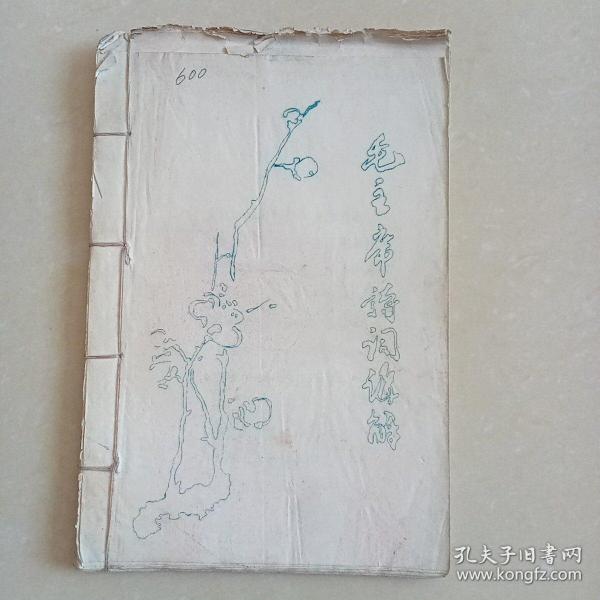 600
毛主席詩词诠解
孔夫子旧書网
www.kongfz.com